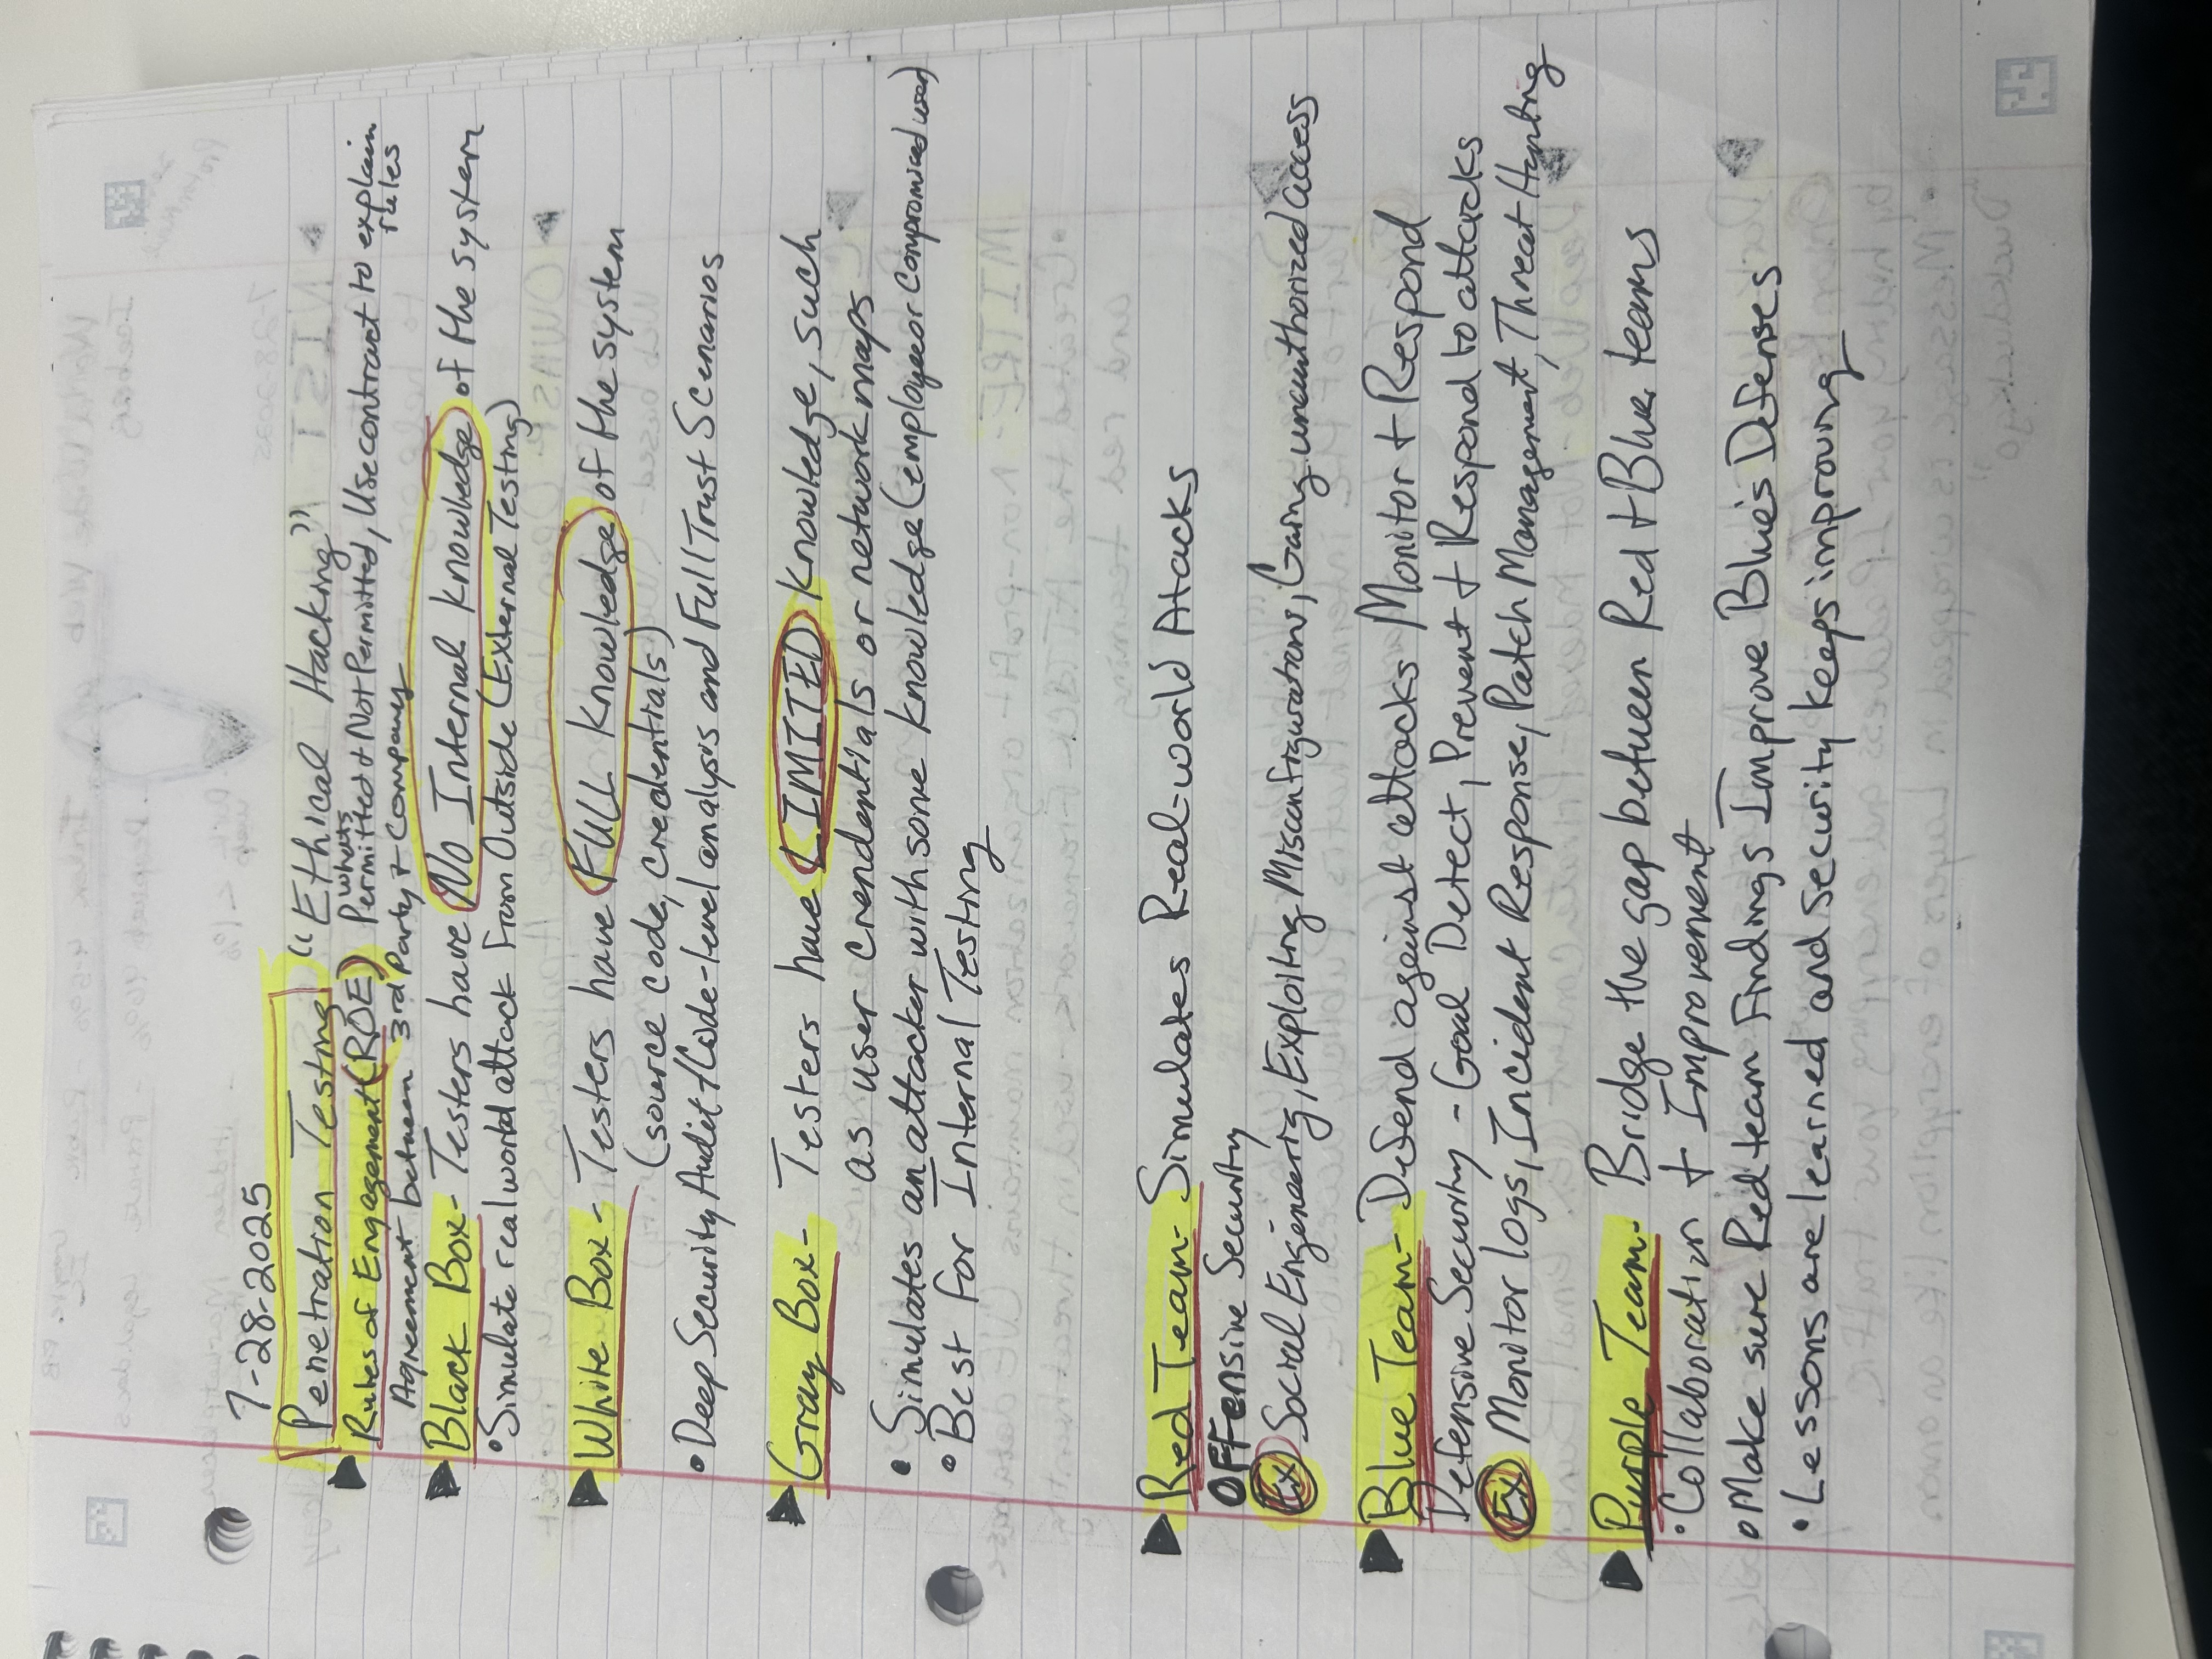 7-28-2025
Penetration Testing "Ethical Hacking"
Rules of Engagement (ROE) whats Permitted + Not Permitted, Use contract to explain rules
Agreement between 3rd Party + Company
Black Box- Testers have No Internal Knowledge of the system
• Simulate real world attack From Outside (External Testing)
White Box- Testers have FULL Knowledge of the system
(source code, credentials)
• Deep Security Audit / Code-level analysis and Full Trust Scenarios
Gray Box- Testers have LIMITED Knowledge, such
as user crendentials or network maps
• Simulates an attacker with some Knowledge (employee or compromised user)
• Best For Internal Testing
Red Team- Simulates Real-world Atacks
OFFensive Security
Ex Social Engineerig, Exploiting Misconfigurations, Gaing unauthorized access
Blue Team- Defend against attacks Monitor + Respond
Defensive Security - Goal Detect, Prevent + Respond to attacks
Ex Monitor logs, Incident Response, Patch Management, Threat Hunting
Purple Team- Bridge the gap between Red + Blue teams
• Collaboration + Improvement
• Make sure Red team Findings Improve Blue's Defenses
• Lessons are learned and security keeps improving